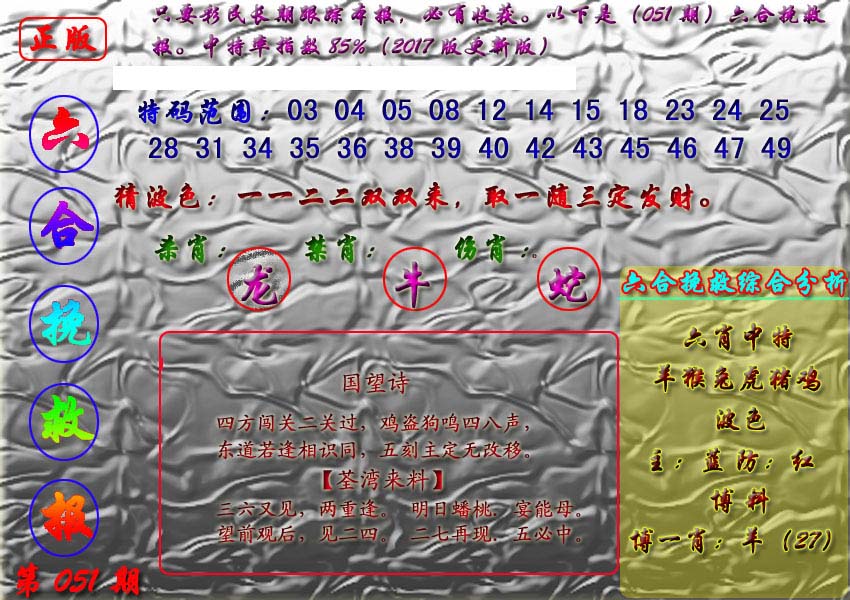 正版
只要彩民长期跟踪本报，必有收获。以下是（051期）六合挽救
报。中特率指数85%（2017版更新版）
六合挽救报
第051期
特码范围：03 04 05 08 12 14 15 18 23 24 25
28 31 34 35 36 38 39 40 42 43 45 46 47 49
猜波色：一一二二双双来，取一随三定发财。
杀肖：龙 禁肖：牛 伤肖：蛇
国望诗
四方闯关二关过，鸡盗狗鸣四八声，
东道若逢相识同，五刻主定无改移。
【荃湾来料】
三六又见，两重逢。 明日蟠桃．宴能母。
望前观后，见二四。 二七再现．五必中。
六合挽救综合分析
六肖中特
羊猴兔虎猪鸡
波色
主：蓝防：红
博料
博一肖：羊（27）